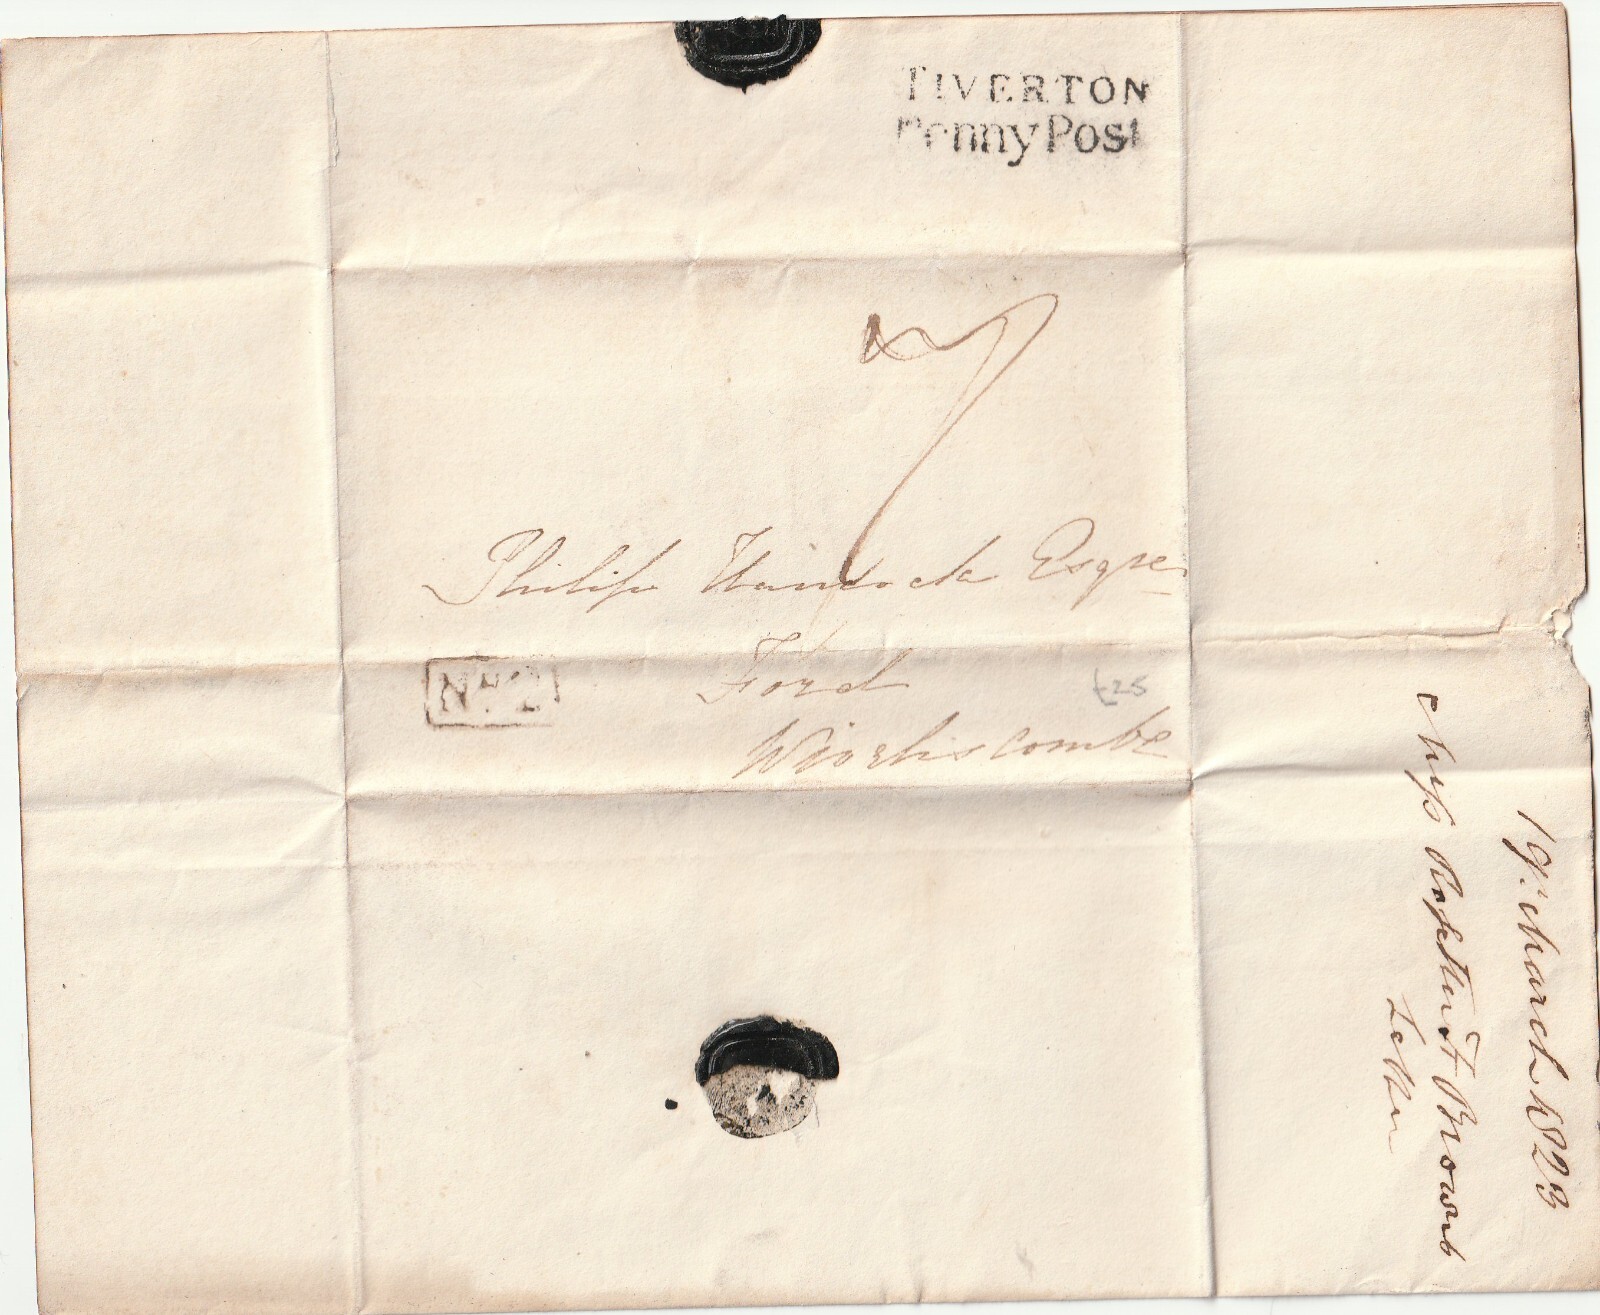 TIVERTON
Penny Post
7
Philip Hancock Esqre
Ford
Wiveliscombe
No 2
£25
19th March 1823
Miss Brown's
Letter